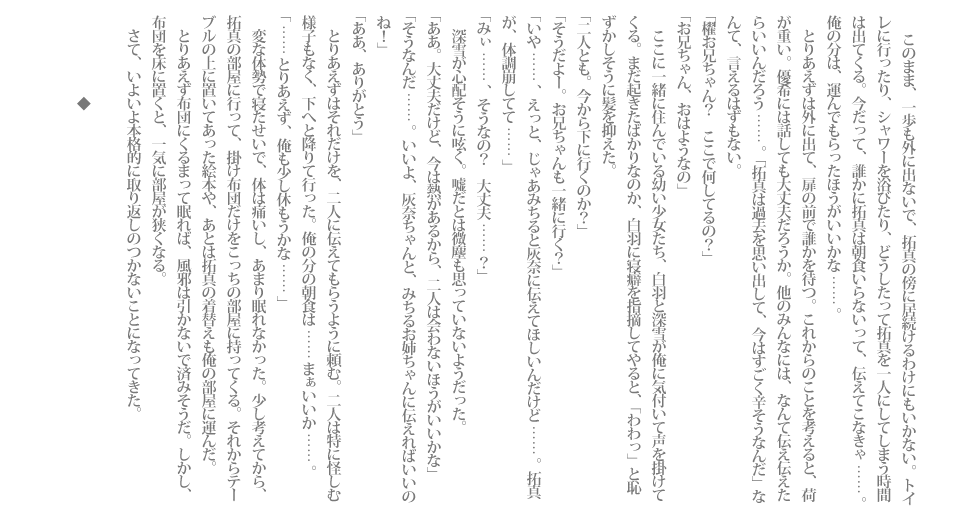 このまま、一歩も外に出ないで、拓真の傍に居続けるわけにもいかない。トイ
レに行ったり、シャワーを浴びたり、どうしたって拓真を一人にしてしまう時間
は出てくる。今だって、誰かに拓真は朝食いらないって、伝えてこなきゃ……。
俺の分は、運んでもらったほうがいいかな……。
とりあえずは外に出て、扉の前で誰かを待つ。これからのことを考えると、荷
が重い。優希には話しても大丈夫だろうか。他のみんなには、なんて伝え伝えた
らいいんだろう……。「拓真は過去を思い出して、今はすごく辛そうなんだ」な
んて、言えるはずもない。
「櫂お兄ちゃん?　ここで何してるの?」
「お兄ちゃん、おはようなの」
ここに一緒に住んでいる幼い少女たち、白羽と深雪が俺に気付いて声を掛けて
くる。まだ起きたばかりなのか、白羽に寝癖を指摘してやると、「わわっ」と恥
ずかしそうに髪を抑えた。
「二人とも。今から下に行くのか?」
「そうだよー。お兄ちゃんも一緒に行く?」
「いや……、えっと、じゃあみちると灰奈に伝えてほしいんだけど……。拓真
が、体調崩してて……」
「みぃ……、そうなの?　大丈夫……?」
深雪が心配そうに呟く。嘘だとは微塵も思っていないようだった。
「ああ。大丈夫だけど、今は熱があるから、二人は会わないほうがいいかな」
「そうなんだ……。いいよ、灰奈ちゃんと、みちるお姉ちゃんに伝えればいいの
ね!」
「ああ、ありがとう」
とりあえずはそれだけを、二人に伝えてもらうように頼む。二人は特に怪しむ
様子もなく、下へと降りて行った。俺の分の朝食は……まぁいいか……。
「……とりあえず、俺も少し休もうかな……」
変な体勢で寝たせいで、体は痛いし、あまり眠れなかった。少し考えてから、
拓真の部屋に行って、掛け布団だけをこっちの部屋に持ってくる。それからテー
ブルの上に置いてあった絵本や、あとは拓真の着替えも俺の部屋に運んだ。
とりあえず布団にくるまって眠れば、風邪は引かないで済みそうだ。しかし、
布団を床に置くと、一気に部屋が狭くなる。
さて、いよいよ本格的に取り返しのつかないことになってきた。
◆